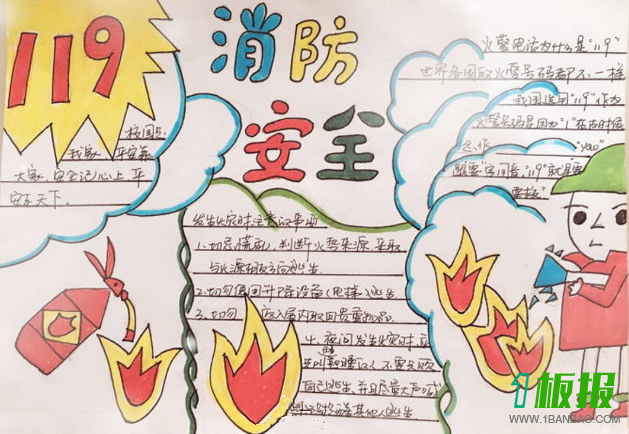 119
消防
安全
火警电话为什么是"119"
世界各国的火警号码都不一样
我国选用"119"作为
火警号码是因为"1"在古时候
念作"yao"
跟"要"字同音."119"就是要
要救
大家.安全记心上.平
安在天下.
发生火灾时注意的事项
1.切忌慌乱,判断火势来源.采取
与火源相反方向逃生
2.切勿使用升降设备(电梯)逃生
3.切勿 返入屋内取回贵重物品
4.夜间发生火灾时,应
先叫醒熟睡的人 不要只顾
自己逃生 并且尽量大声喊叫
其他人逃生
1板报
WWW.1BANBAO.COM